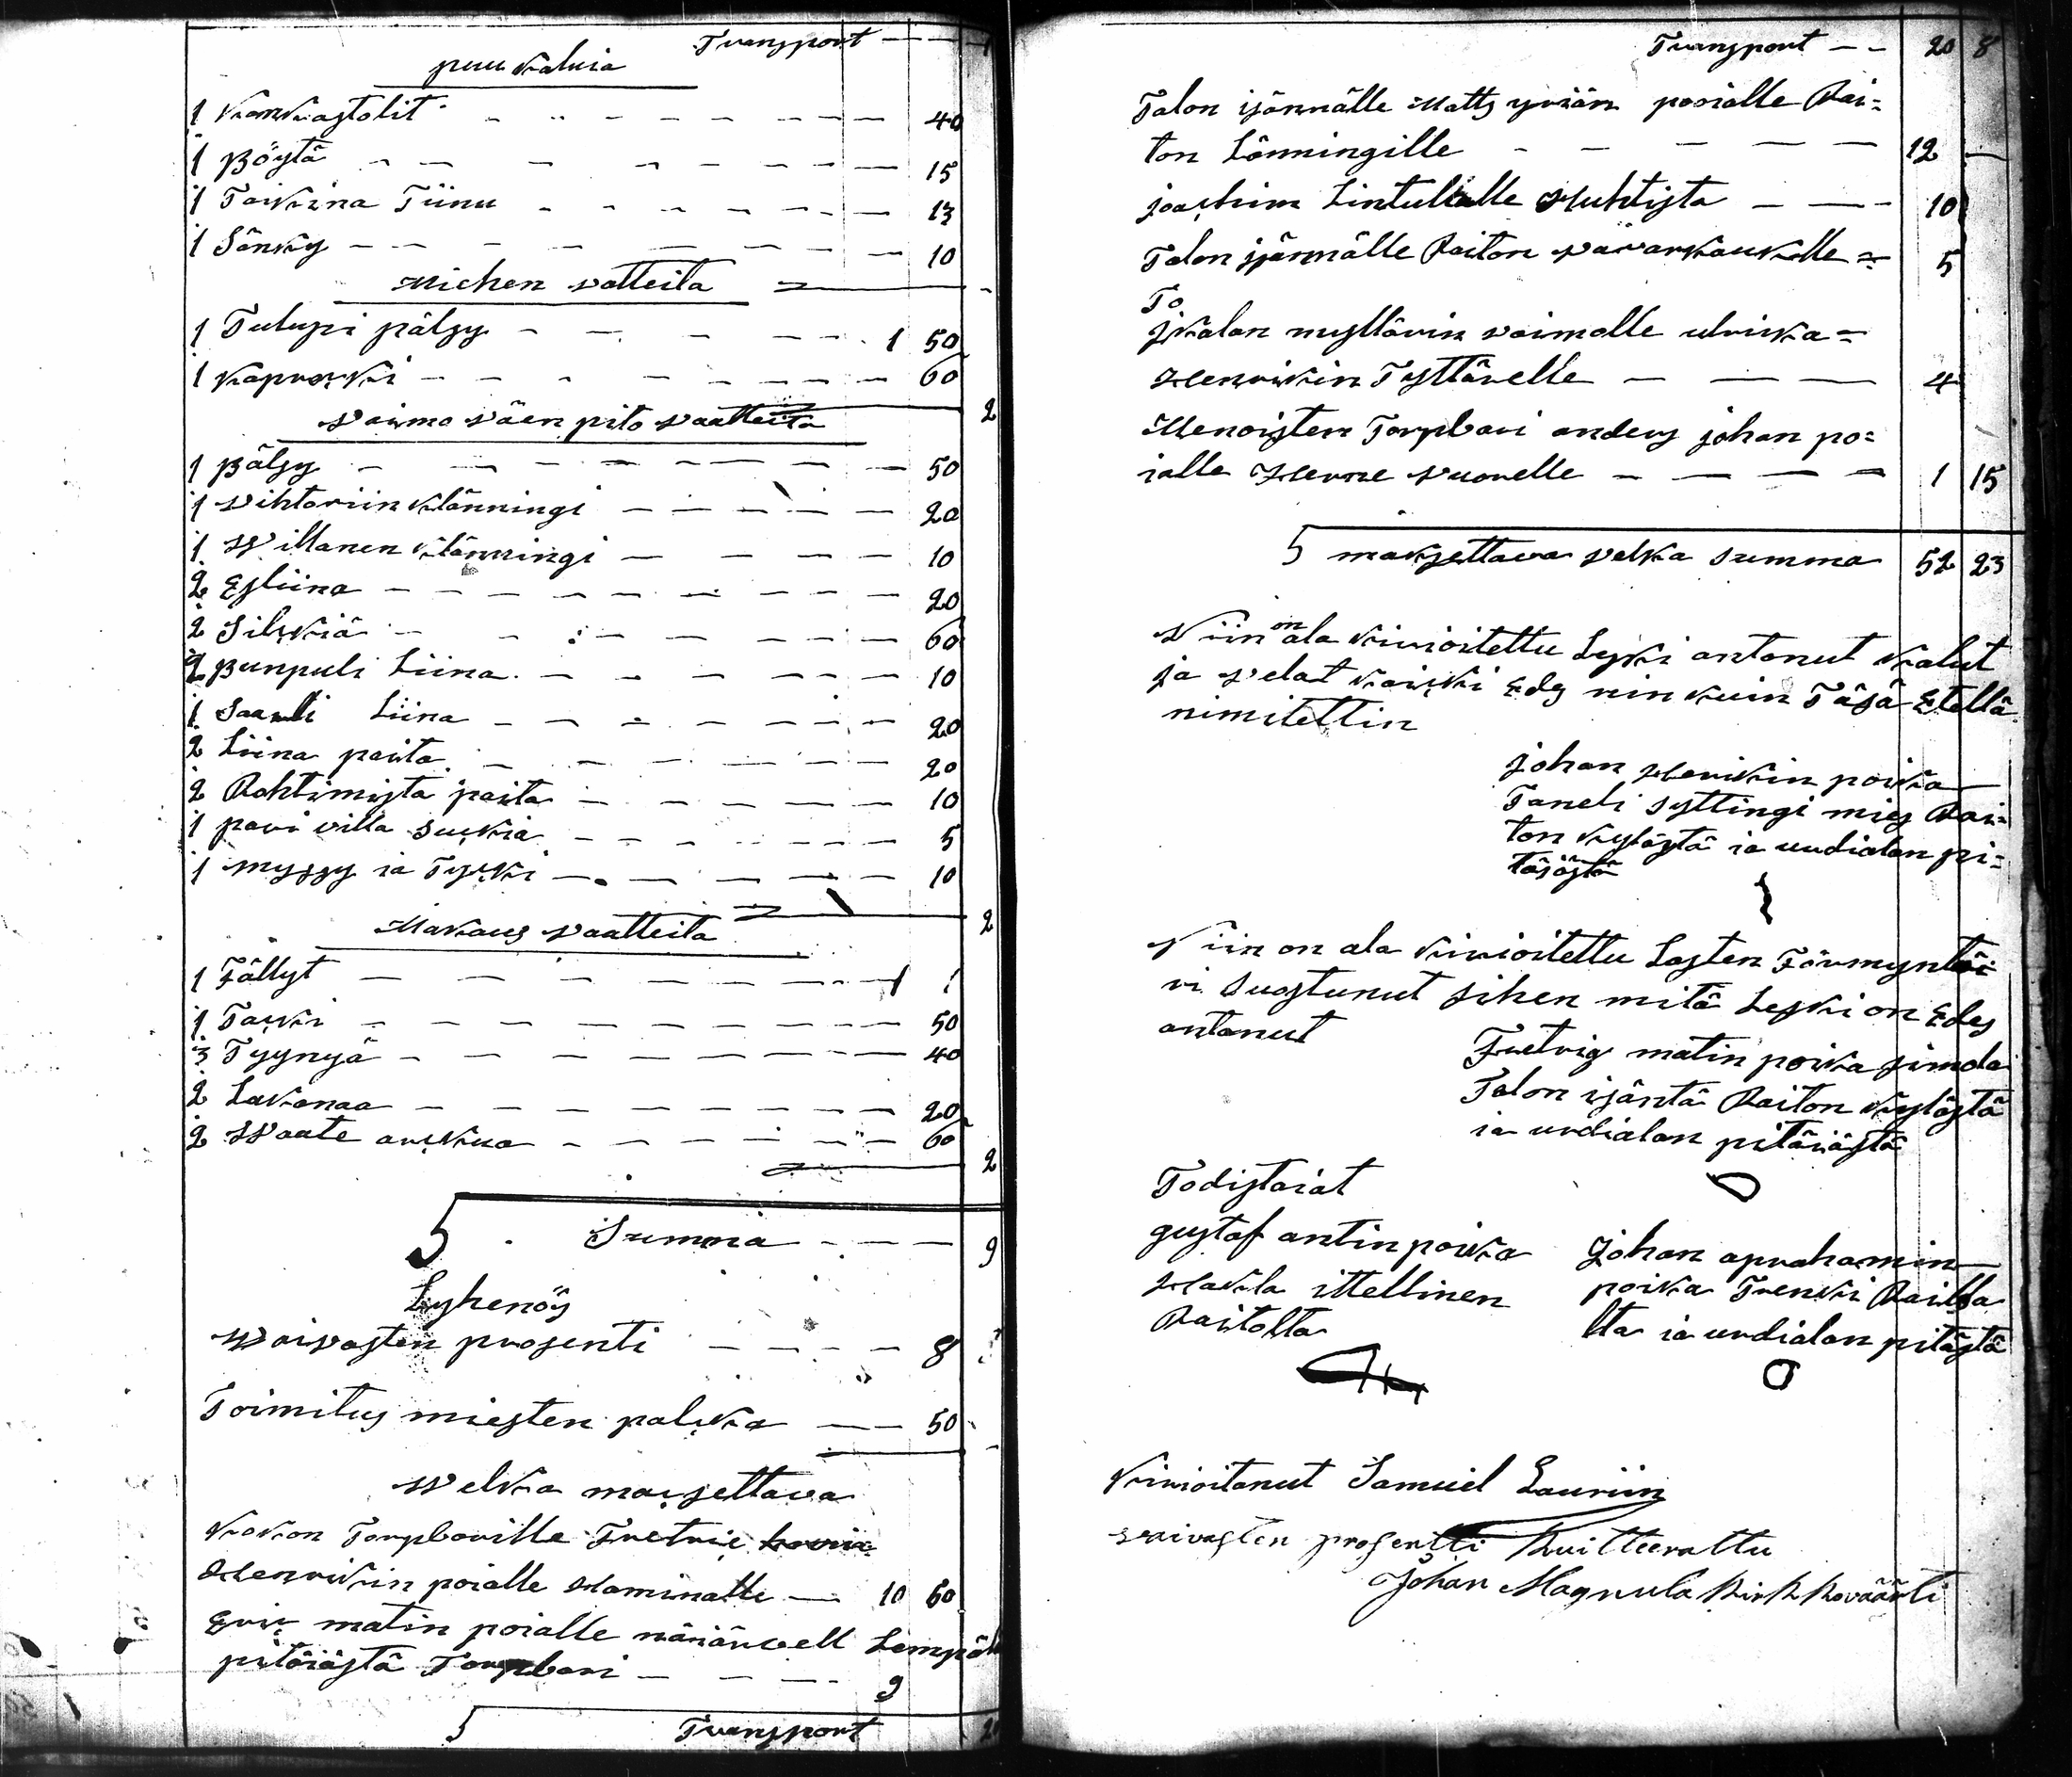 Transport — — 1
puu kaluia
1 Kankastolit — — 40
1 Pöytä — — 15
1 Taikina Tiinu — — 13
1 Sänky — — 10
Miehen vatteita
1 Tulupi pälsy — — 1 50
1 kaprokki — — 60
2
vaimo väen pito vaatteita
1 pälsy — — 50
1 vihtoriin klänningi — — 20
1 Willanen klänningi — — 10
2 Esliina — — 20
2 Silkkiä — — 60
2 Punpuli Liina — — 10
1 Saali Liina — — 20
2 Liina paita — — 20
2 Rohtimista paita — — 10
1 pari villa sukkia — — 5
1 myssy ia Tykki — — 10
2
Makaus vaatteita
1 Fällyt — — 1 1
1 Täkki — — 50
3 Tyynyä — — 40
2 Lakanaa — — 20
2 Waate arkkua — — 60
2
Summa — — 9
Lyhenös
Waivasten prosenti — — 8
Toimitus miesten palkka — — 50
Welka maksettava
Kokon Torpbarille Fretric
Henrikin poialle Haminalle — 10 60
Eric matin poialle Lempä
pitäiästä Torpbari — — 9
Transport 2
Transport — — 20 8
Talon isännälle Matts yriän poialle Rai=
ton Länningille — — 12 —
joachim Lintulalle Huhtista — — 10
Talon isännälle Raiton vävarkaukelle = 5
To
jkalan myllärin vaimolle ulrika =
Henrikin Tyttärelle — — 4
Menoisten Torpbari anders johan po=
ialle Herne vuorelle — — 1 15
maksettava velka summa 52 23
Niin on ala kirioitettu Lyski antanut kalut
ja velat kaikki Eds nin kuin Täsä Etellä
nimitettin
johan Henrikin poika
Taneli syttingi mies Rai=
ton kylästä ia urdialan pi=
täjästä
Niin on ala kirioitettu Lasten Förmyntäi
ri suostunut siihen mitä Leski on Edes
antanut
Fretrig matin poika simola
Talon isäntä Raiton kylästä
ia urdialan pitäiästä
Todistaiat
gustaf antin poika
Hakila ittellinen
Raitolta
Johan aprahamin
poika Trenki Raitta
lta ia urdialan pitästä
Kirioitanut Samuel Lauriin
vaivasten prosentti kuitteerattu
Johan Magnula Kirkkovääärti